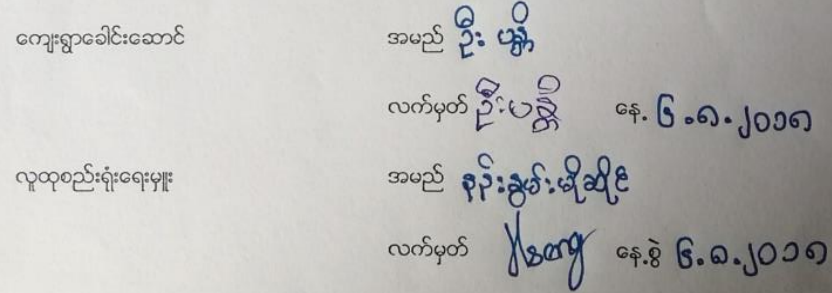 ကျေးရွာခေါင်းဆောင် အမည် ဦး ပန္တိ
လက်မှတ် ဦးပန္တိ နေ့ ၆.၈.၂၀၁၈
လူထုစည်းရုံးရေးမှူး အမည် နည်းခွမ်းမိူဆိုင်
လက်မှတ် နေ့စွဲ ၆.၈.၂၀၁၈